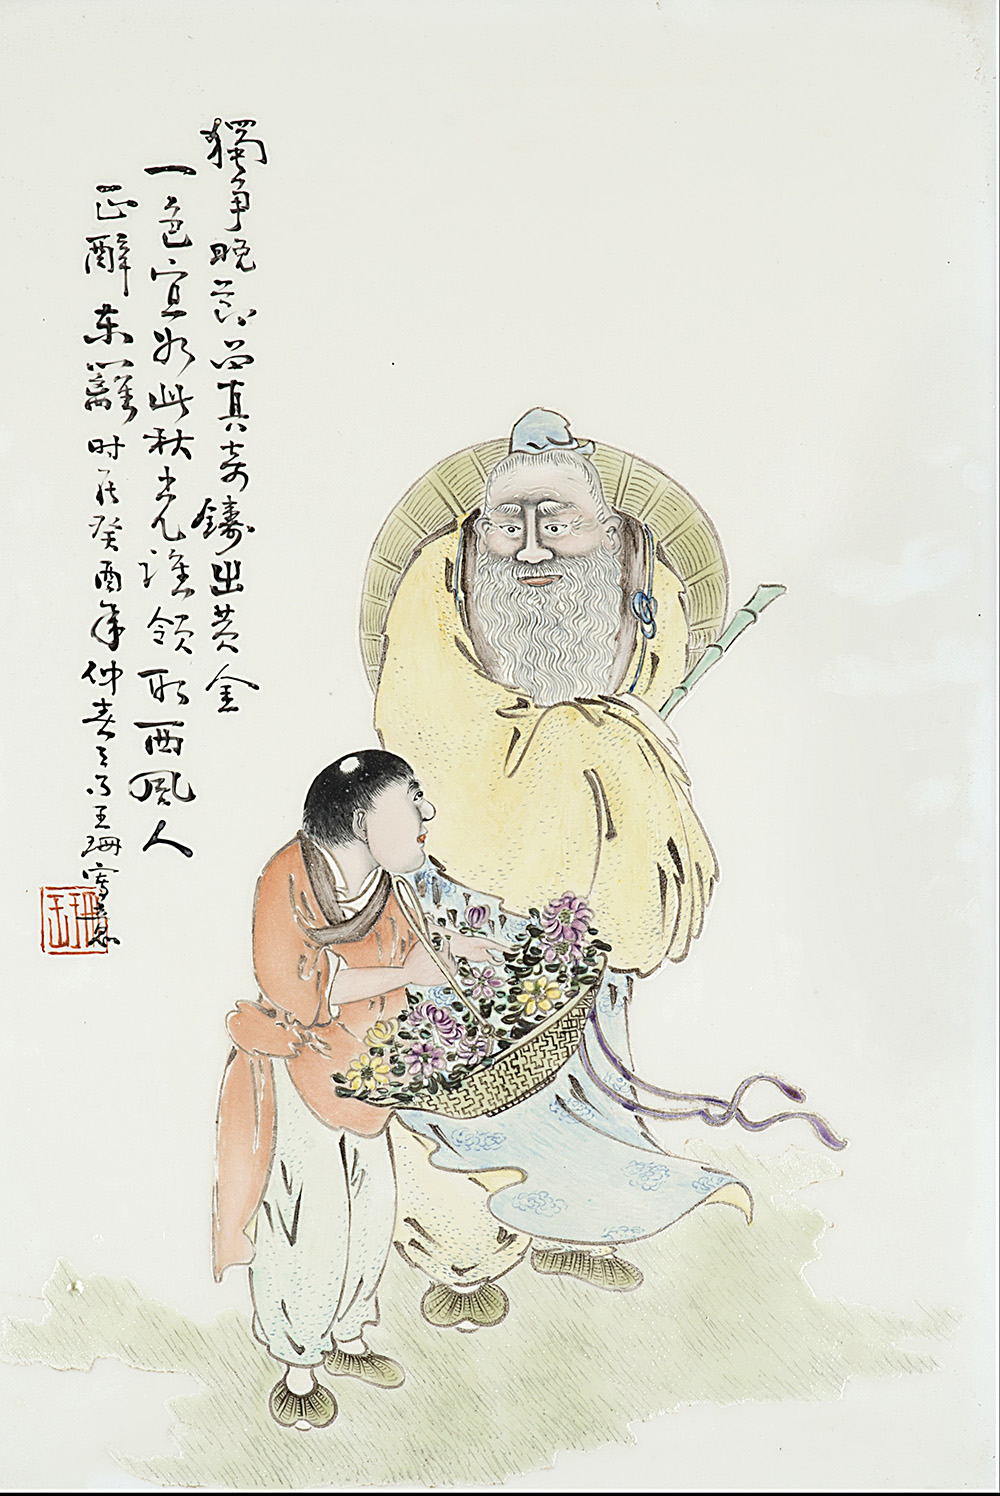 獨爭晚節尚真奇鑄出黄金
一色宜如此秋光誰領取西風人
正醉東籬时在癸酉年仲春之月王珊寫意